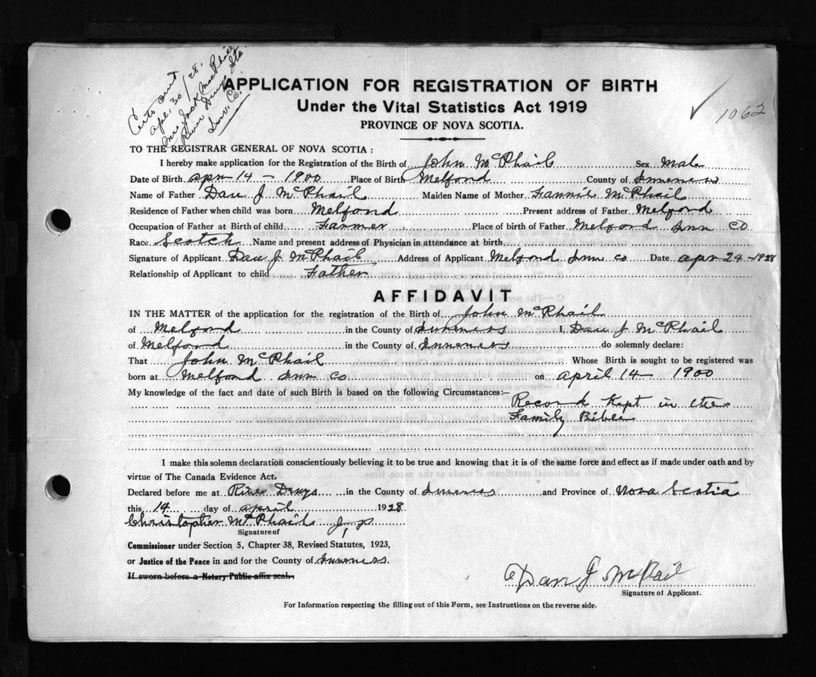 Certs out
Apl. 30/28.
Mrs Jack McPhail
River Denys Sta
Inv. Co.
APPLICATION FOR REGISTRATION OF BIRTH
Under the Vital Statistics Act 1919
PROVINCE OF NOVA SCOTIA.
✓ 1062
TO THE REGISTRAR GENERAL OF NOVA SCOTIA :
I hereby make application for the Registration of the Birth of John McPhail Sex Male
Date of Birth apr 14 - 1900 Place of Birth Melford County of Inverness
Name of Father Dan J McPhail Maiden Name of Mother Fannie McPhail
Residence of Father when child was born Melford Present address of Father Melford
Occupation of Father at Birth of child Farmer Place of birth of Father Melford Inn Co
Race Scotch Name and present address of Physician in attendance at birth
Signature of Applicant Dan J McPhail Address of Applicant Melford Inn Co Date apr 24 - 1928
Relationship of Applicant to child Father
AFFIDAVIT
IN THE MATTER of the application for the registration of the Birth of John McPhail
of Melford in the County of Inverness I, Dan J McPhail
of Melford in the County of Inverness do solemnly declare:
That John McPhail Whose Birth is sought to be registered was
born at Melford Inn Co on april 14 - 1900
My knowledge of the fact and date of such Birth is based on the following Circumstances:- Record Kept in the
Family Bible
I make this solemn declaration conscientiously believing it to be true and knowing that it is of the same force and effect as if made under oath and by
virtue of The Canada Evidence Act.
Declared before me at River Denys in the County of Inverness and Province of Nova Scotia
this 14 day of april 1928
Christopher McPhail J P
Signature of
Commissioner under Section 5, Chapter 38, Revised Statutes, 1923,
or Justice of the Peace in and for the County of Inverness.
If sworn before a Notary Public affix seal.
Dan J McPail
Signature of Applicant.
For Information respecting the filling out of this Form, see Instructions on the reverse side.